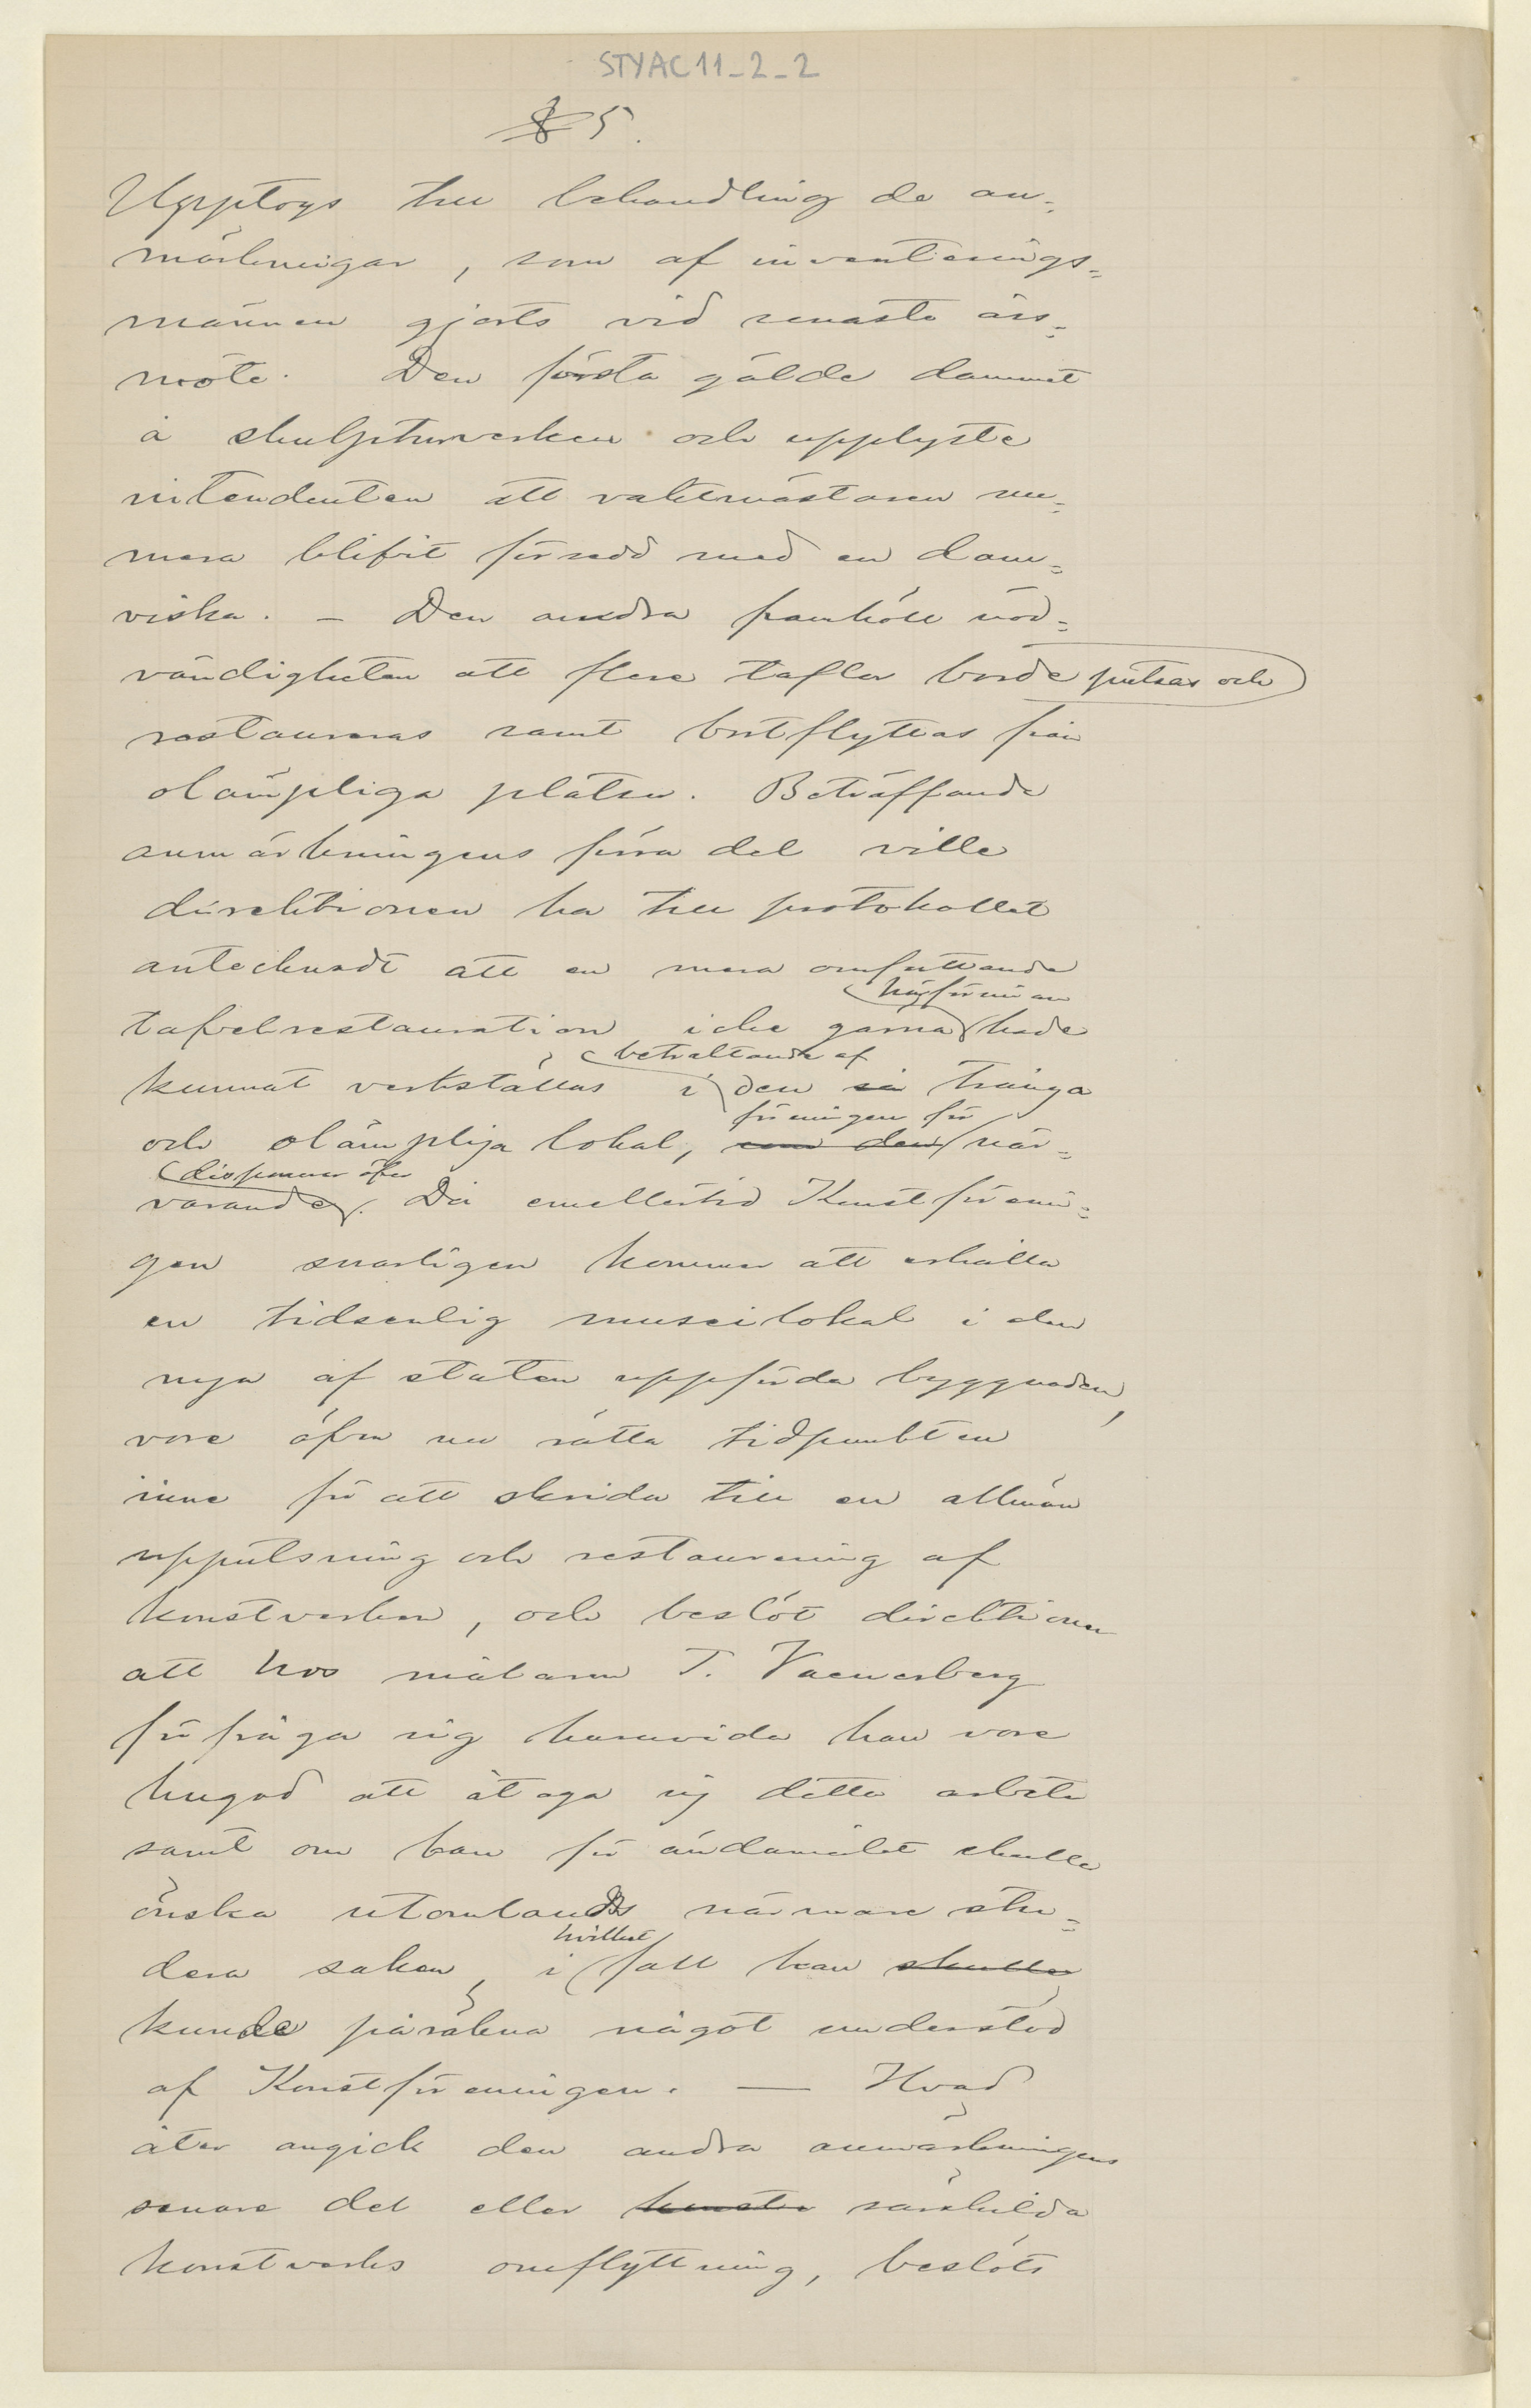 STYAC11_2_2
§ 5.
Upptogs till behandling de an-
märkningar, som af inventerings-
männen gjorts vid senaste års-
möte. Den första gälde dammet
å skulpturverken och upplyste
intendenten att vaktmästaren nu-
mera blifvit försedd med en dam-
viska. — Den andra framhöll nöd-
vändigheten att flere taflor borde putsas och
restaureras samt bortflyttas från
olämpliga platser. Beträffande
anmärkningens förra del ville
direktionen ha till protokollet
antecknadt att en mera omfattande
härförinnan
tafvelrestauration icke gärna hade
betraktande af
kunnat verkställas i den så trånga
föreningen för
och olämpliga lokal, som den när-
disponerar öfver
varande. Då emellertid Konstförenin-
gen snarligen kommer att erhålla
en tidsenlig museilokal i den
nya af staten uppförda byggnaden,
vore äfven nu rätta tidpunkten
inne för att skrida till en allmän
upputsning och restaurering af
konstverken, och beslöt direktionen
att hos målaren T. Waenerberg
förfråga sig huruvida han vore
hugad att åtaga sig detta arbete
samt om han för ändamålet skulle
önska utomlands närmare stu-
hvilket
dera saken, i fall han skulle
kunde påräkna något understöd
af Konstföreningen. — Hvad
åter angick den andra anmärkningens
senare del eller konstv särskilda
konstverks omflyttning, beslöts